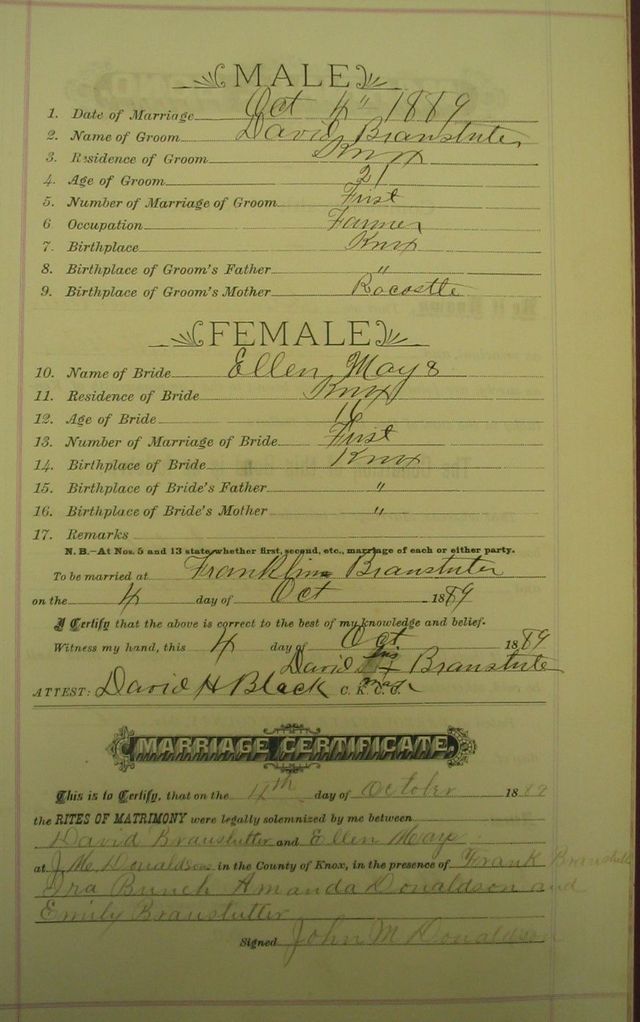 MALE
1. Date of Marriage Oct 4" 1889
2. Name of Groom David Branstuter
3. Residence of Groom Knox
4. Age of Groom 21
5. Number of Marriage of Groom First
6 Occupation Farmer
7. Birthplace Knox
8. Birthplace of Groom's Father "
9. Birthplace of Groom's Mother Rocastle
FEMALE
10. Name of Bride Ellen Mays
11. Residence of Bride Knox
12. Age of Bride 16
13. Number of Marriage of Bride First
14. Birthplace of Bride Knox
15. Birthplace of Bride's Father "
16. Birthplace of Bride's Mother "
17. Remarks
N. B.—At Nos. 5 and 13 state whether first, second, etc., marriage of each or either party.
To be married at Franklin Branstuter
on the 4 day of Oct 1889
I Certify that the above is correct to the best of my knowledge and belief.
Witness my hand, this 4 day of Oct 1889
David his X mark Branstuter
ATTEST: David H Black C. K. C. C.
MARRIAGE CERTIFICATE.
This is to Certify, that on the 4th day of October 1889
the RITES OF MATRIMONY were legally solemnized by me between
David Branstutter and Ellen Mays
at J. M. Donaldson in the County of Knox, in the presence of Frank Branstutter
Ira Bunch Amanda Donaldson and
Emily Branstutter
Signed John M Donaldson